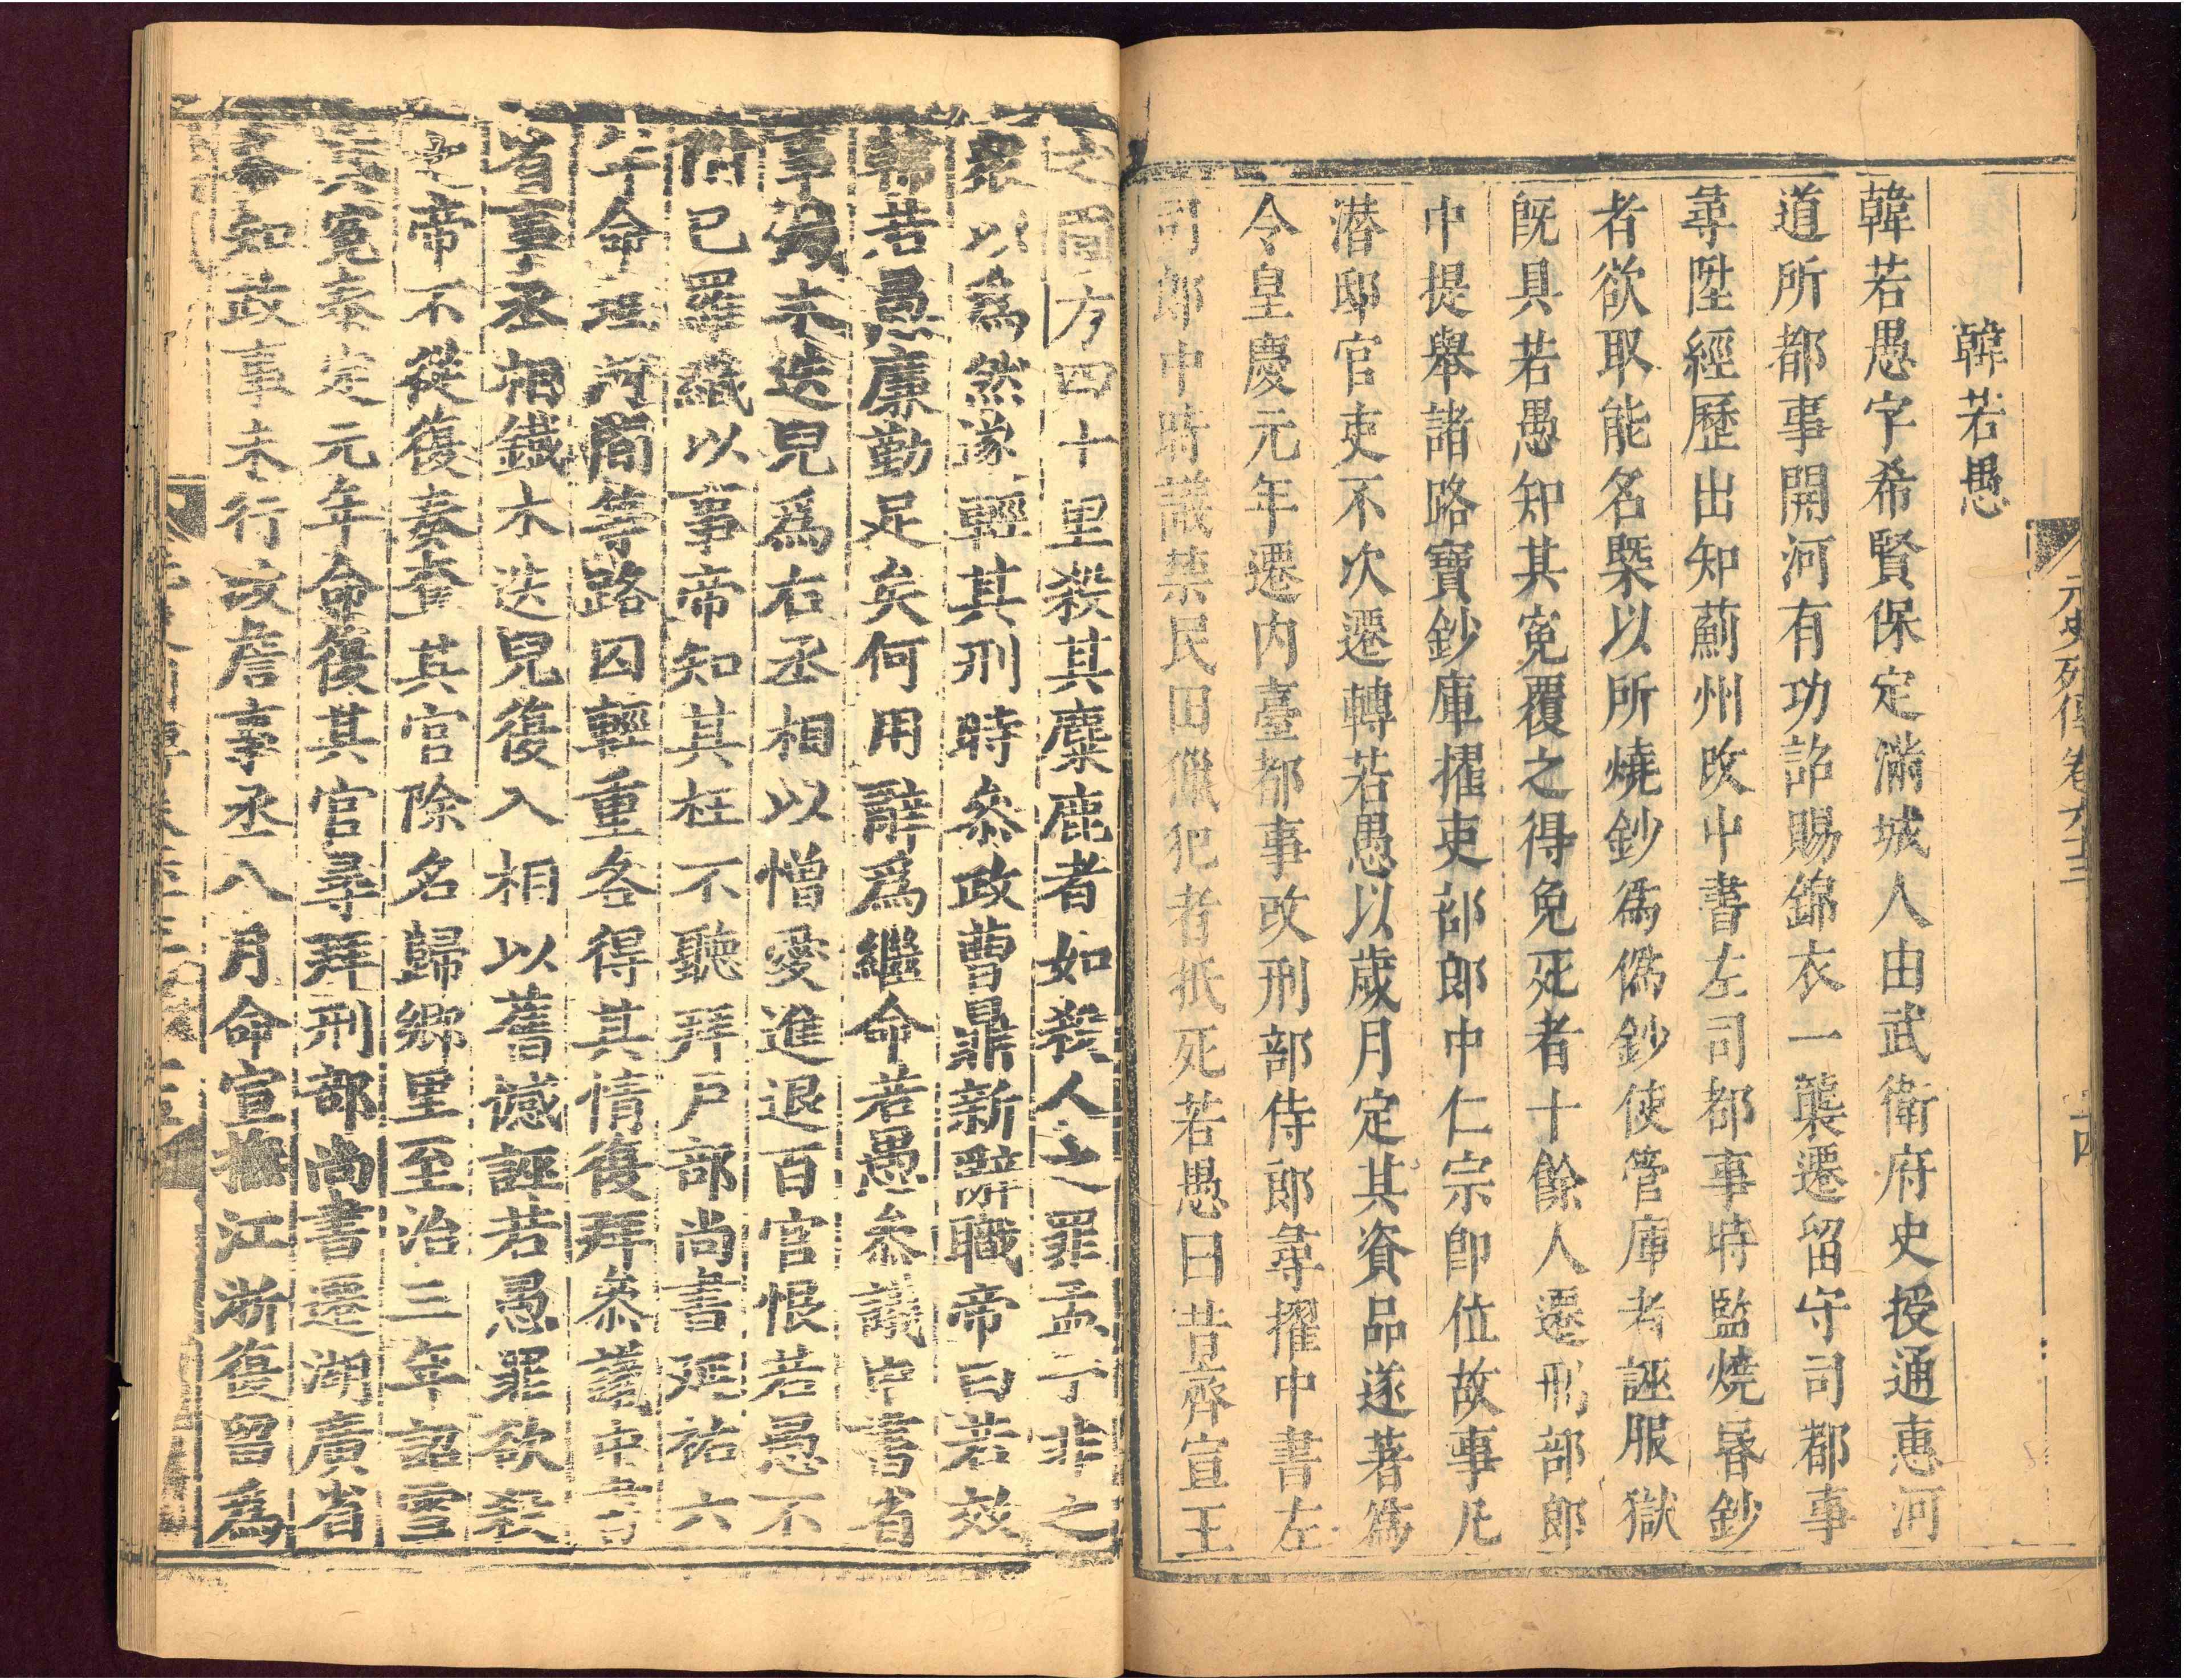 韓若愚
韓若愚字希賢保定滿城人由武衛府史授通惠河
道所都事開河有功詔賜錦衣一襲遷留守司都事
尋陞經歷出知薊州改中書左司都事時監燒昬鈔
者欲取能名槩以所燒鈔爲僞鈔使管庫者誣服獄
旣具若愚知其寃覆之得免死者十餘人遷刑部郎
中提舉諸路寶鈔庫擢吏部郎中仁宗卽位故事凡
潜邸官吏不次遷轉若愚以歲月定其資品遂著爲
令皇慶元年遷内臺都事改刑部侍郎尋擢中書左
司郎中時議禁民田獵犯者抵死若愚曰昔齊宣王
之囿方四十里殺其麋鹿者如殺人之罪孟子非之
衆以爲然遂輕其刑時叅政曹鼎新辭職帝曰若效
韓若愚廉勤足矣何用辭爲繼命若愚叅議中書省
事鐵木迭兒爲右丞相以憎愛進退百官恨若愚不
附己羅織以事帝知其枉不聽拜戶部尚書延祐六
年命理河間等路囚輕重各得其情復拜叅議中書
省事丞相鐵木迭兒復入相以舊憾誣若愚罪欲殺
之帝不從復奏奪其官除名歸鄉里至治三年詔雪
其寃泰定元年命復其官尋拜刑部尚書遷湖廣省
叅知政事未行改詹事丞八月命宣撫江浙復留爲
元史列傳卷六十三
十四